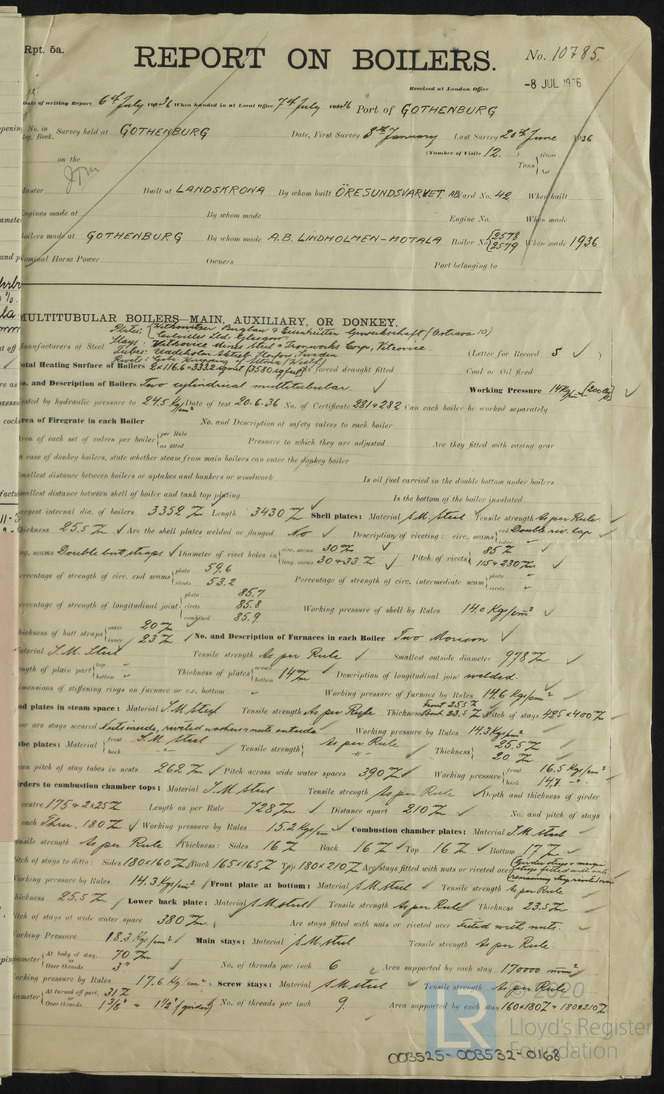 Rpt. 5a.
REPORT ON BOILERS.
No. 10785.
Received at London Office
-8 JUL 1936
Date of writing Report 6th July 1936 When handed in at Local Office 7th July 1936 Port of GOTHENBURG
No. in Survey held at GOTHENBURG Date, First Survey 8th January Last Survey 20th June 1936
Reg. Book.
(Number of Visits 12.)
on the Tons Gross Net
Master Built at LANDSKRONA By whom built ÖRESUNDSVARVET AB Yard No. 42 When built
Engines made at By whom made Engine No. When made
Boilers made at GOTHENBURG By whom made A.B. LINDHOLMEN-MOTALA Boiler No. 2578 2579 When made 1936
Nominal Horse Power Owners Port belonging to
MULTITUBULAR BOILERS MAIN, AUXILIARY, OR DONKEY.
Manufacturers of Steel (Letter for Record S)
Total Heating Surface of Boilers forced draught fitted Coal or Oil fired
No. and Description of Boilers Two cylindrical multitubular Working Pressure 14 Kg/cm² (200 lbs)
Tested by hydraulic pressure to 24.5 Kg/cm² Date of test 20.6.36 No. of Certificate 281 & 282 Can each boiler be worked separately
Area of Firegrate in each Boiler No. and Description of safety valves to each boiler
Area of each set of valves per boiler per Rule as fitted Pressure to which they are adjusted Are they fitted with easing gear
In case of donkey boilers, state whether steam from main boilers can enter the donkey boiler
Smallest distance between boilers or uptakes and bunkers or woodwork Is oil fuel carried in the double bottom under boilers
Smallest distance between shell of boiler and tank top plating Is the bottom of the boiler insulated
Largest internal dia. of boilers 3352 Length 3430 Shell plates: Material S.M. Steel Tensile strength As per Rule
Thickness 25.5 Are the shell plates welded or flanged No Description of riveting: circ. seams end Double riv. lap
long. seams Double butt straps Diameter of rivet holes in circ. seams 30 long. seams 30 & 33 Pitch of rivets 85 115 & 230
Percentage of strength of circ. end seams plate 59.6 rivets 53.2 Percentage of strength of circ. intermediate seam plate rivets
Percentage of strength of longitudinal joint plate 85.7 rivets 85.8 combined 85.9 Working pressure of shell by Rules 14.0 Kg/cm²
Thickness of butt straps outer 20 inner 23 No. and Description of Furnaces in each Boiler Two Morison
Material S.M. Steel Tensile strength As per Rule Smallest outside diameter 978
Length of plain part top bottom Thickness of plates crown bottom 14 Description of longitudinal joint welded.
Dimensions of stiffening rings on furnace or c.c. bottom Working pressure of furnace by Rules 14.6 Kgs/cm²
End plates in steam space: Material S.M. steel Tensile strength As per Rule Thickness Front 25.5 Back 23.5 Pitch of stays 425 x 400
How are stays secured Nuts inside, riveted washers & nuts outside Working pressure by Rules 14.3 Kg/cm²
Tube plates: Material front back S.M. steel Tensile strength As per Rule Thickness 25.5 20
Mean pitch of stay tubes in nests 262 Pitch across wide water spaces 390 Working pressure front 16.5 Kg/cm² back 14.7
Girders to combustion chamber tops: Material S.M. steel Tensile strength As per Rule Depth and thickness of girder
at centre 175 & 2x25 Length as per Rule 728 Distance apart 210 No. and pitch of stays
in each Three. 180 Working pressure by Rules 15.2 Kg/cm² Combustion chamber plates: Material S.M. steel
Tensile strength As per Rule Thickness: Sides 16 Back 16 Top 16 Bottom 17
Pitch of stays to ditto: Sides 180x160 Back 165x165 Top 180x210 Are stays fitted with nuts or riveted over
Working pressure by Rules 14.3 Kg/cm² Front plate at bottom: Material S.M. steel Tensile strength As per Rule
Thickness 25.5 Lower back plate: Material S.M. steel Tensile strength As per Rule Thickness 23.5
Pitch of stays at wide water space 380 Are stays fitted with nuts or riveted over Fitted with nuts.
Working Pressure 18.3 Kg/cm² Main stays: Material S.M. steel Tensile strength As per Rule
Diameter At body of stay, 70 or Over threads 3" No. of threads per inch 6 Area supported by each stay 170000 mm²
Working pressure by Rules 17.6 Kg/cm² Screw stays: Material S.M. steel Tensile strength As per Rule
Diameter At turned off part, 31 or Over threads 1 3/8" & 1 1/2" (girder) No. of threads per inch 9. Area supported by each stay 160x180 & 180x210
© 2020
LR Lloyd's Register
Foundation
003525-003532-0168